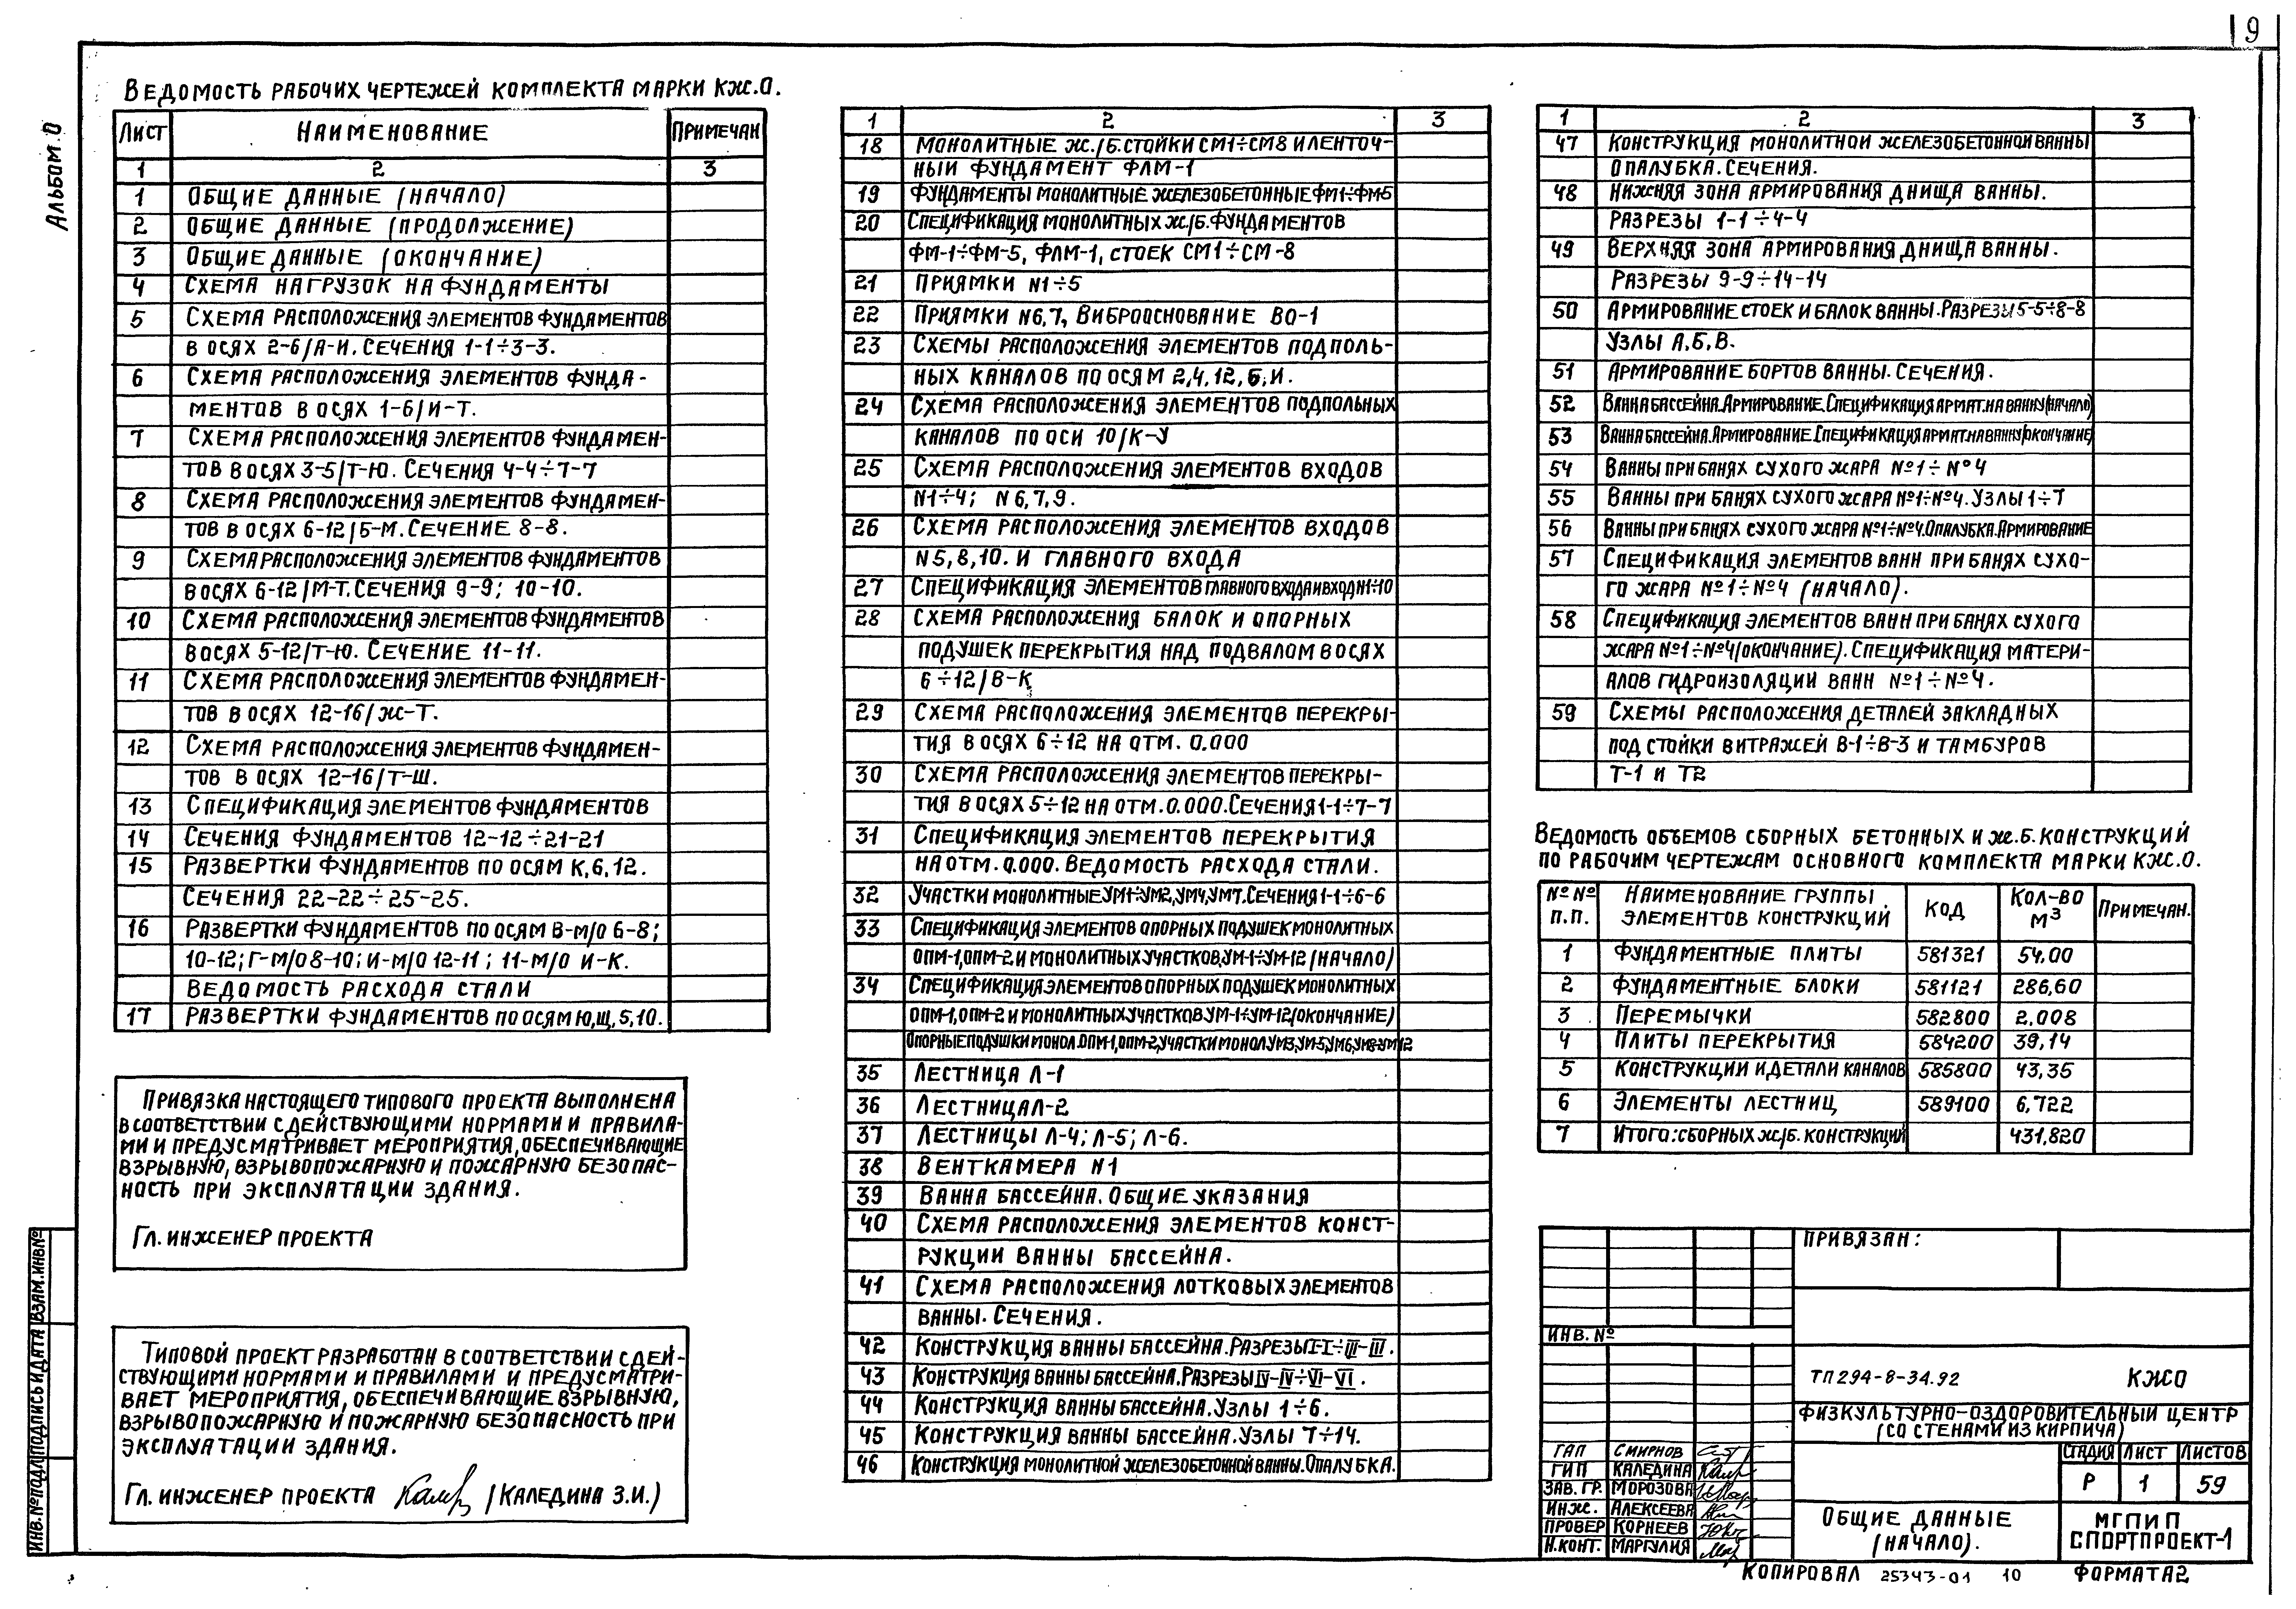 9
Альбом.0
Ведомость рабочих чертежей комплекта марки КЖ.0.
Лист Наименование Примечан
1 2 3
1 Общие данные (начало)
2 Общие данные (продолжение)
3 Общие данные (окончание)
4 Схема нагрузок на фундаменты
5 Схема расположения элементов фундаментов
в осях 2-6/А-И. Сечения 1-1÷3-3.
6 Схема расположения элементов фунда-
ментов в осях 1-6/И-Т.
7 Схема расположения элементов фундамен-
тов в осях 3-5/Т-Ю. Сечения 4-4÷7-7
8 Схема расположения элементов фундамен-
тов в осях 6-12/Б-М. Сечение 8-8.
9 Схема расположения элементов фундаментов
в осях 6-12/М-Т. Сечения 9-9; 10-10.
10 Схема расположения элементов фундаментов
в осях 5-12/Т-Ю. Сечение 11-11.
11 Схема расположения элементов фундамен-
тов в осях 12-16/Ж-Т.
12 Схема расположения элементов фундамен-
тов в осях 12-16/Т-Ш.
13 Спецификация элементов фундаментов
14 Сечения фундаментов 12-12÷21-21
15 Развертки фундаментов по осям К,6,12.
Сечения 22-22÷25-25.
16 Развертки фундаментов по осям В-м/о 6-8;
10-12; Г-м/о 8-10; И-м/о 12-11; 11-м/о И-К.
Ведомость расхода стали
17 Развертки фундаментов по осям Ю,Щ,5,10.
Привязка настоящего типового проекта выполнена
в соответствии с действующими нормами и правила-
ми и предусматривает мероприятия, обеспечивающие
взрывную, взрывопожарную и пожарную безопас-
ность при эксплуатации здания.
Гл. инженер проекта
Типовой проект разработан в соответствии с дей-
ствующими нормами и правилами и предусматри-
вает мероприятия, обеспечивающие взрывную,
взрывопожарную и пожарную безопасность при
эксплуатации здания.
Гл. инженер проекта (Каледина З.И.)
1 2 3
18 Монолитные ж./б. стойки СМ1÷СМ8 и ленточ-
ный фундамент ФЛМ-1
19 Фундаменты монолитные железобетонные ФМ1÷ФМ5
20 Спецификация монолитных ж./б. фундаментов
ФМ-1÷ФМ-5, ФЛМ-1, стоек СМ1÷СМ-8
21 Приямки N1÷5
22 Приямки N6,7, Виброоснование ВО-1
23 Схемы расположения элементов подполь-
ных каналов по осям 2,4,12,Б,И.
24 Схема расположения элементов подпольных
каналов по оси 10/К-У
25 Схема расположения элементов входов
N1÷4; N6,7,9.
26 Схема расположения элементов входов
N5,8,10. и главного входа
27 Спецификация элементов главного входа и вход N1÷10
28 Схема расположения балок и опорных
подушек перекрытия над подвалом в осях
6÷12/В-К
29 Схема расположения элементов перекры-
тия в осях 6÷12 на отм. 0.000
30 Схема расположения элементов перекры-
тия в осях 5÷12 на отм. 0.000. Сечения 1-1÷7-7
31 Спецификация элементов перекрытия
на отм. 0.000. Ведомость расхода стали.
32 Участки монолитные УМ1÷УМ2, УМ4, УМ7. Сечения 1-1÷6-6
33 Спецификация элементов опорных подушек монолитных
ОПМ-1, ОПМ-2 и монолитных участков, УМ-1÷УМ-12 (начало)
34 Спецификация элементов опорных подушек монолитных
ОПМ-1, ОПМ-2 и монолитных участков УМ-1÷УМ-12 (окончание)
Опорные подушки монол. ОПМ-1, ОПМ-2, участки монол. УМ3, УМ-5, УМ6, УМ8-УМ12
35 Лестница Л-1
36 Лестница Л-2
37 Лестницы Л-4; Л-5; Л-6.
38 Венткамера N1
39 Ванна бассейна. Общие указания
40 Схема расположения элементов конст-
рукции ванны бассейна.
41 Схема расположения лотковых элементов
ванны. Сечения.
42 Конструкция ванны бассейна. Разрезы I-I÷III-III.
43 Конструкция ванны бассейна. Разрезы IV-IV÷VI-VI.
44 Конструкция ванны бассейна. Узлы 1÷6.
45 Конструкция ванны бассейна. Узлы 7÷14.
46 Конструкция монолитной железобетонной ванны. Опалубка.
1 2 3
47 Конструкция монолитной железобетонной ванны
опалубка. Сечения.
48 Нижняя зона армирования днища ванны.
Разрезы 1-1÷4-4
49 Верхняя зона армирования днища ванны.
Разрезы 9-9÷14-14
50 Армирование стоек и балок ванны. Разрезы 5-5÷8-8
Узлы А.Б.В.
51 Армирование бортов ванны. Сечения.
52 Ванна бассейна. Армирование. Спецификация армат. на ванну (начало)
53 Ванна бассейна. Армирование. Спецификация армат. на ванну (окончание)
54 Ванны при банях сухого жара №1÷№4
55 Ванны при банях сухого жара №1÷№4. Узлы 1÷7
56 Ванны при банях сухого жара №1÷№4. Опалубка. Армирование
57 Спецификация элементов ванн при банях сухо-
го жара №1÷№4 (начало).
58 Спецификация элементов ванн при банях сухого
жара №1÷№4 (окончание). Спецификация матери-
алов гидроизоляции ванн №1÷№4.
59 Схемы расположения деталей закладных
под стойки витражей В-1÷В-3 и тамбуров
Т-1 и Т2
Ведомость объемов сборных бетонных и ж.б. конструкций
по рабочим чертежам основного комплекта марки КЖ.0.
№№ п.п. Наименование группы элементов конструкций Код Кол-во м³ Примечан.
1 Фундаментные плиты 581321 54,00
2 Фундаментные блоки 581121 286,60
3 Перемычки 582800 2.008
4 Плиты перекрытия 584200 39,14
5 Конструкции и детали каналов 585800 43,35
6 Элементы лестниц 589100 6,722
7 Итого: сборных ж/б. конструкций 431,820
Привязан:
Инв. №
ТП 294-8-34.92 КЖ0
Физкультурно-оздоровительный центр
(со стенами из кирпича)
Стадия Лист Листов
Р 1 59
ГАП Смирнов
ГИП Каледина
Зав. гр. Морозова
Инж. Алексеева
Провер Корнеев
Н.конт. Маргулия
Общие данные
(начало).
МГПИП
Спортпроект-1
Копировал 25343-01 10 Формат А2
Инв.№ подл Подпись и дата Взам.инв№